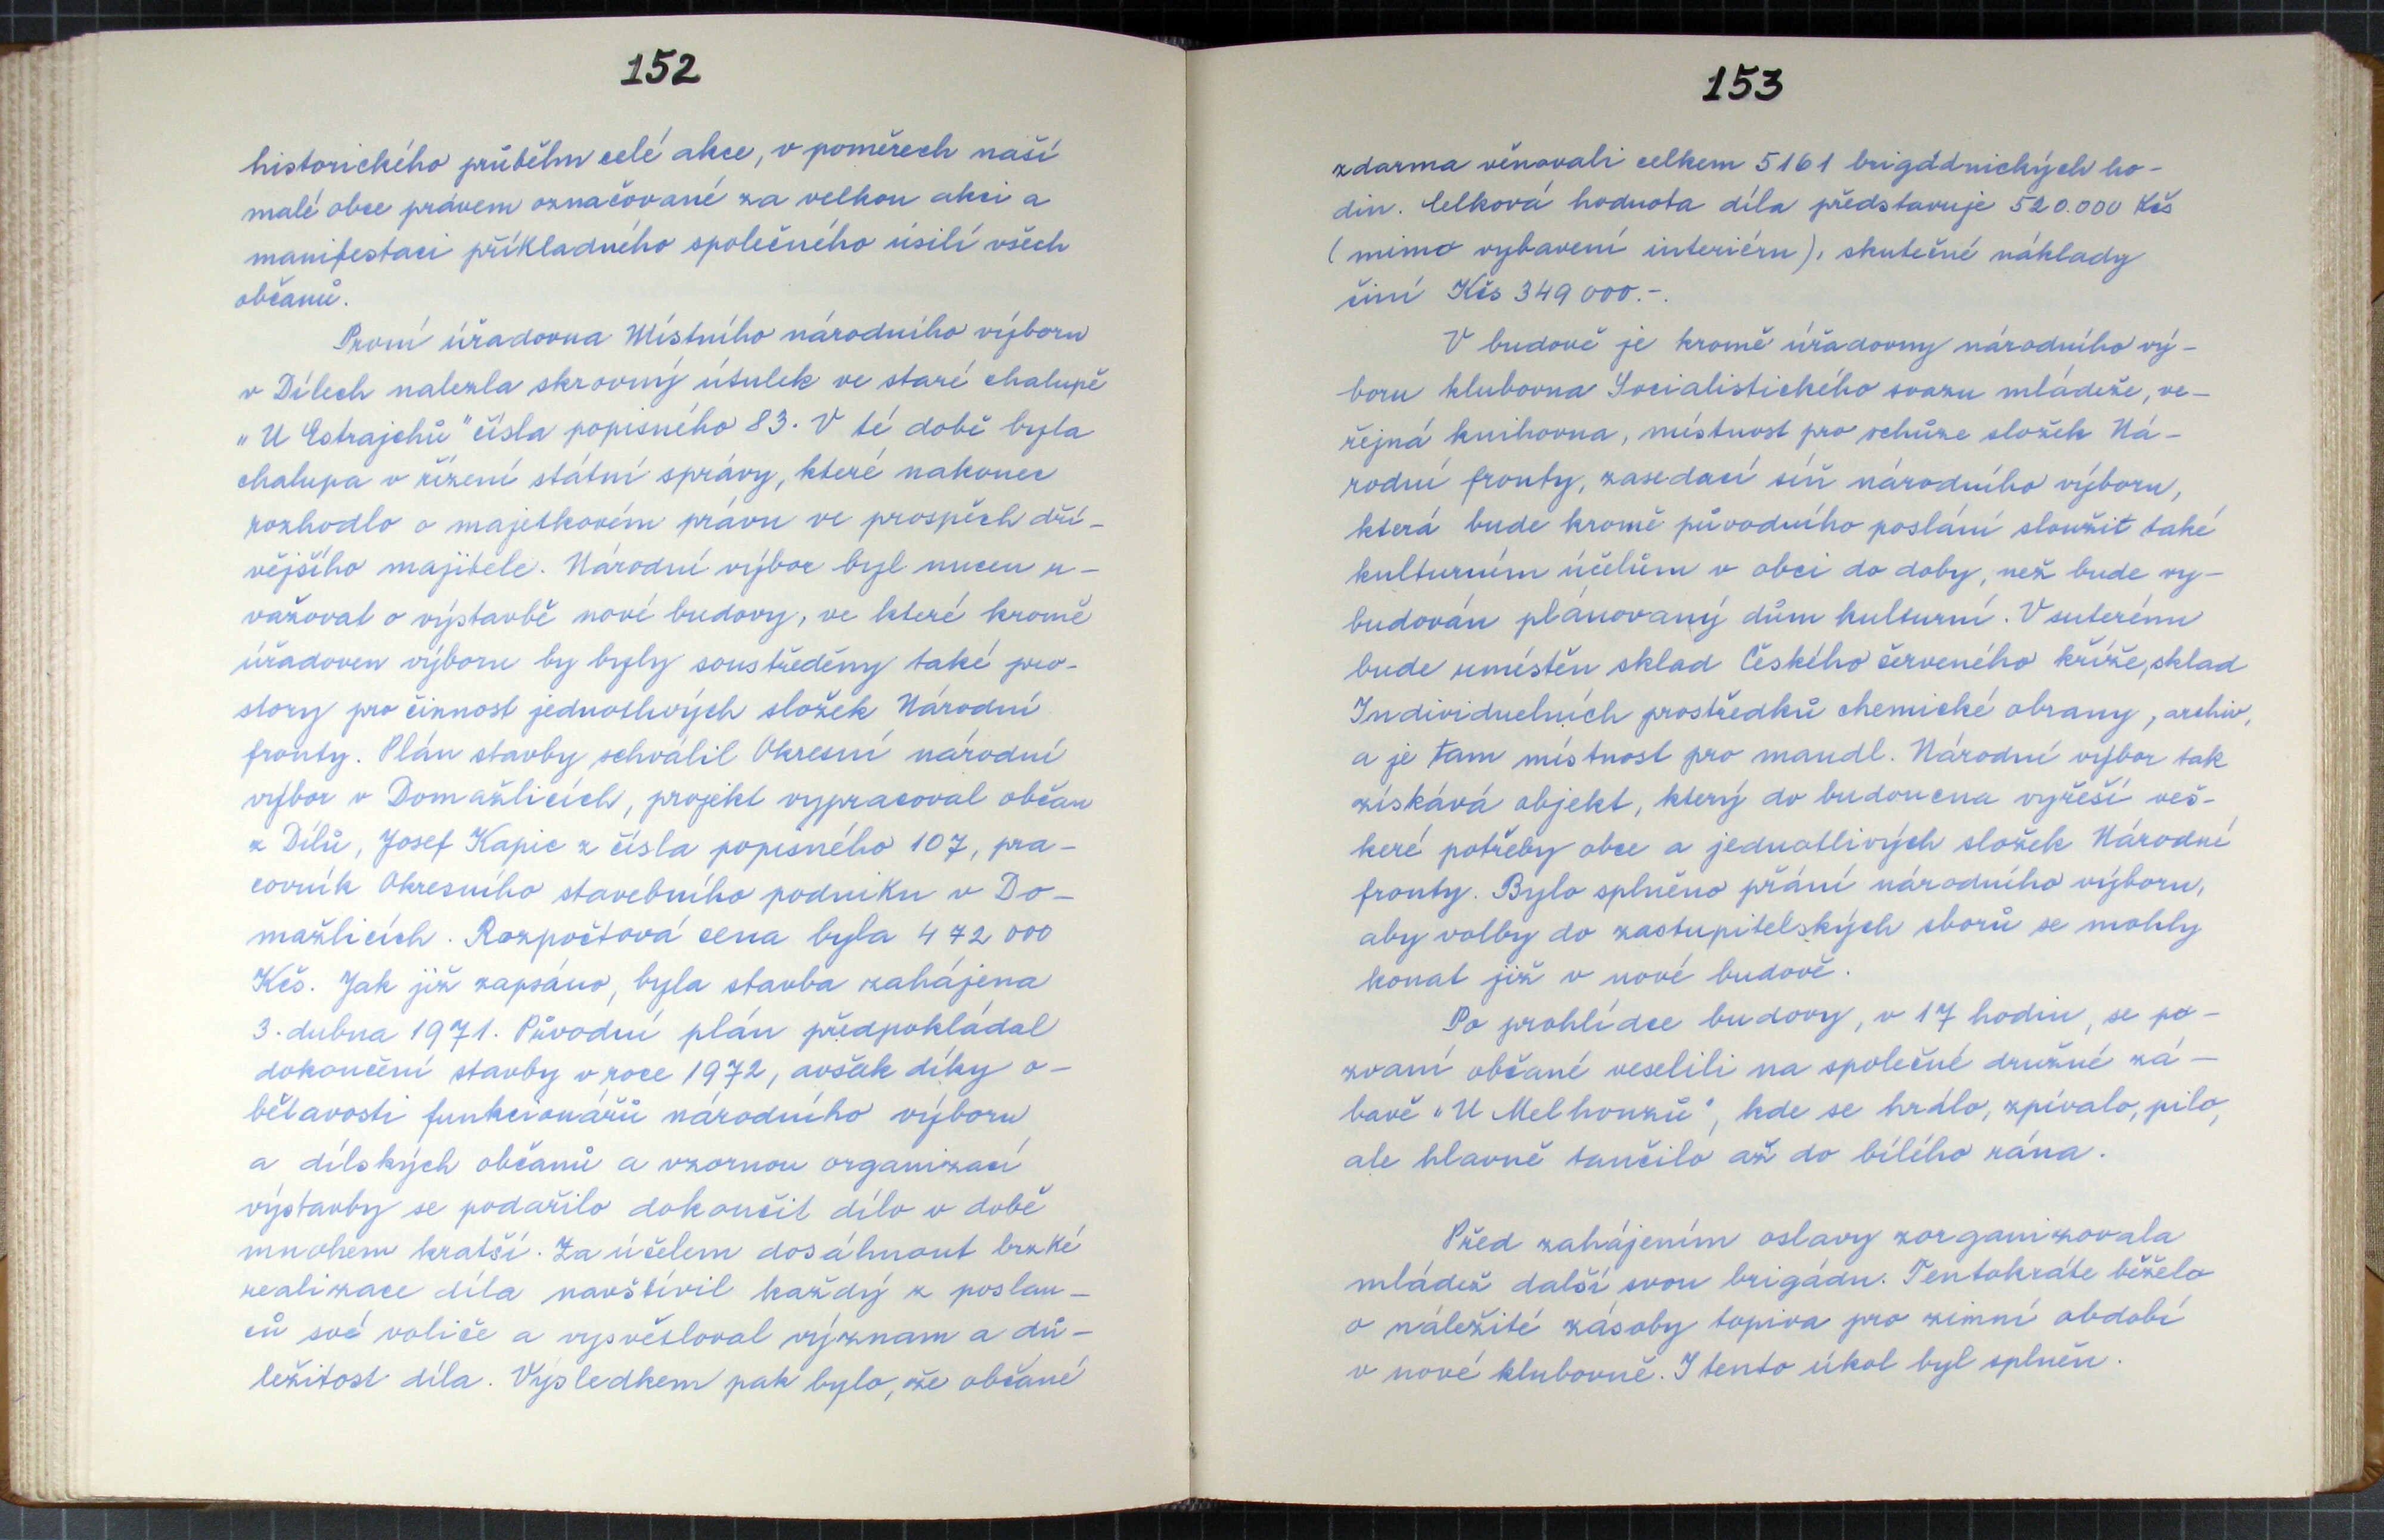 152
historického průběhu celé akce, v poměrech naší
malé obce právem označované za velkou akci a
manifestaci příkladného společného úsilí všech
občanů.
První úřadovna Místního národního výboru
v Dílech nalezla skrovný útulek ve staré chalupě
„U Estrajchů" čísla popisného 83. V té době byla
chalupa v řízení státní správy, které nakonec
rozhodlo o majetkovém právu ve prospěch dří-
vějšího majitele. Národní výbor byl nucen u-
važovat o výstavbě nové budovy, ve které kromě
úřadoven výboru by byly soustředěny také pro-
story pro činnost jednotlivých složek Národní
fronty. Plán stavby schválil Okresní národní
výbor v Domažlicích, projekt vypracoval občan
z Dílů, Josef Kapic z čísla popisného 107, pra-
covník Okresního stavebního podniku v Do-
mažlicích. Rozpočtová cena byla 472 000
Kčs. Jak již zapsáno, byla stavba zahájena
3. dubna 1971. Původní plán předpokládal
dokončení stavby v roce 1972, avšak díky o-
bětavosti funkcionářů národního výboru
a dílských občanů a vzornou organizací
výstavby se podařilo dokončit dílo v době
mnohem kratší. Za účelem dosáhnout brzké
realizace díla navštívil každý z poslan-
ců své voliče a vysvětloval význam a dů-
ležitost díla. Výsledkem pak bylo, že občané
153
zdarma věnovali celkem 5161 brigádnických ho-
din. Celková hodnota díla představuje 520.000 Kčs
(mimo vybavení interiéru), skutečné náklady
činí Kčs 349 000.-.
V budově je kromě úřadovny národního vý-
boru klubovna Socialistického svazu mládeže, ve-
řejná knihovna, místnost pro schůze složek Ná-
rodní fronty, zasedací síň národního výboru,
která bude kromě původního poslání sloužit také
kulturním účelům v obci do doby, než bude vy-
budován plánovaný dům kulturní. V suterénu
bude umístěn sklad Českého červeného kříže, sklad
Individuelních prostředků chemické obrany, archiv,
a je tam místnost pro mandl. Národní výbor tak
získává objekt, který do budoucna vyřeší veš-
keré potřeby obce a jednotlivých složek Národní
fronty. Bylo splněno přání národního výboru,
aby volby do zastupitelských sborů se mohly
konat již v nové budově.
Po prohlídce budovy, v 17 hodin, se po-
zvaní občané veselili na společné družné zá-
bavě „U Melhouzů", kde se hrálo, zpívalo, pilo,
ale hlavně tančilo až do bílého rána.
Před zahájením oslavy zorganizovala
mládež další svou brigádu. Tentokráte běželo
o náležité zásoby topiva pro zimní období
v nové klubovně. I tento úkol byl splněn.